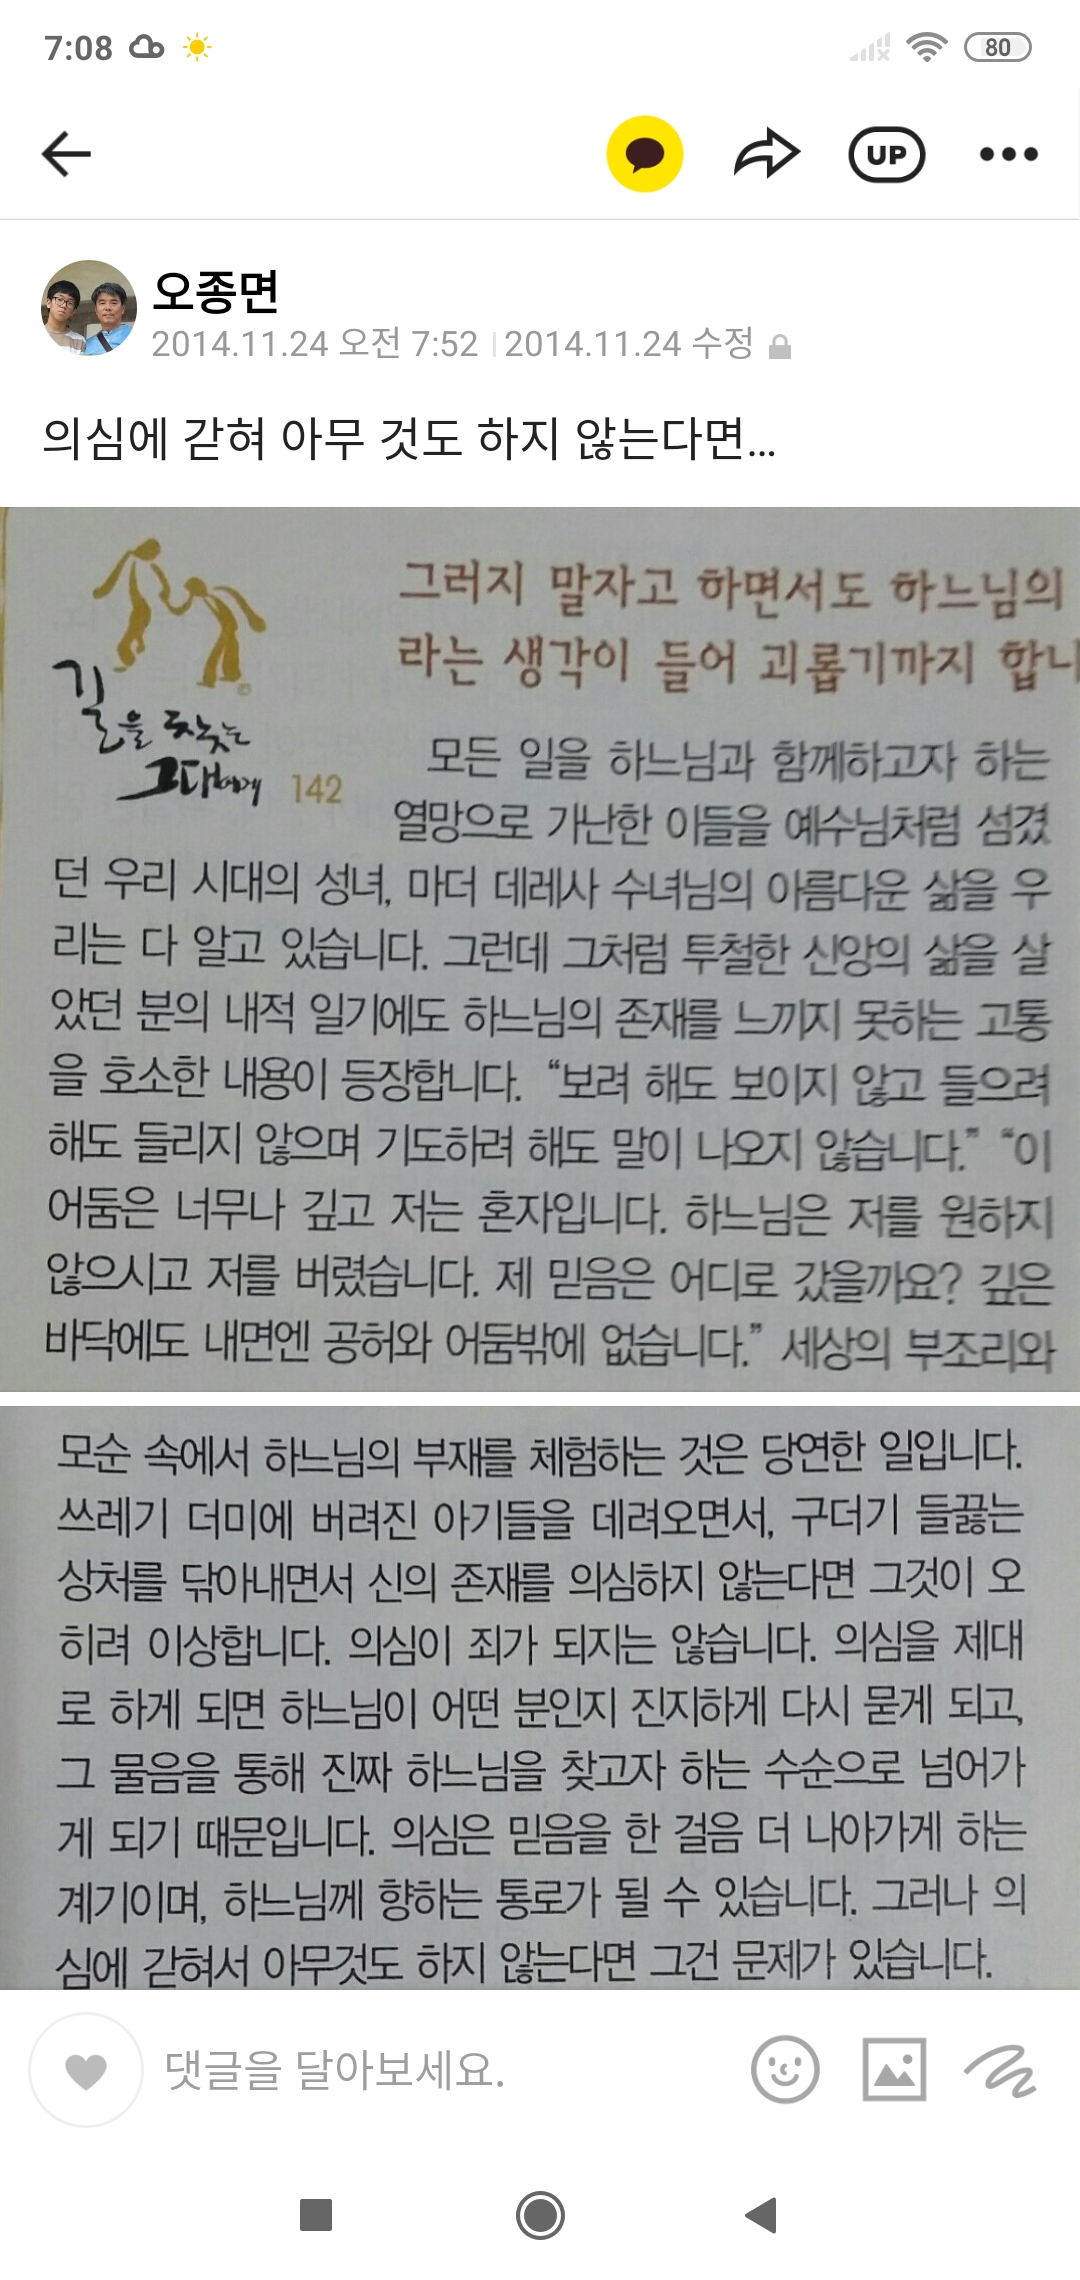 7:08
80
UP
오종면
2014.11.24 오전 7:52 | 2014.11.24 수정
의심에 갇혀 아무 것도 하지 않는다면...
그러지 말자고 하면서도 하느님의
라는 생각이 들어 괴롭기까지 합니
길을 찾는
그대에게 142
모든 일을 하느님과 함께하고자 하는
열망으로 가난한 이들을 예수님처럼 섬겼
던 우리 시대의 성녀, 마더 데레사 수녀님의 아름다운 삶을 우
리는 다 알고 있습니다. 그런데 그처럼 투철한 신앙의 삶을 살
았던 분의 내적 일기에도 하느님의 존재를 느끼지 못하는 고통
을 호소한 내용이 등장합니다. “보려 해도 보이지 않고 들으려
해도 들리지 않으며 기도하려 해도 말이 나오지 않습니다.” “이
어둠은 너무나 깊고 저는 혼자입니다. 하느님은 저를 원하지
않으시고 저를 버렸습니다. 제 믿음은 어디로 갔을까요? 깊은
바닥에도 내면엔 공허와 어둠밖에 없습니다.” 세상의 부조리와
모순 속에서 하느님의 부재를 체험하는 것은 당연한 일입니다.
쓰레기 더미에 버려진 아기들을 데려오면서, 구더기 들끓는
상처를 닦아내면서 신의 존재를 의심하지 않는다면 그것이 오
히려 이상합니다. 의심이 죄가 되지는 않습니다. 의심을 제대
로 하게 되면 하느님이 어떤 분인지 진지하게 다시 묻게 되고,
그 물음을 통해 진짜 하느님을 찾고자 하는 수순으로 넘어가
게 되기 때문입니다. 의심은 믿음을 한 걸음 더 나아가게 하는
계기이며, 하느님께 향하는 통로가 될 수 있습니다. 그러나 의
심에 갇혀서 아무것도 하지 않는다면 그건 문제가 있습니다.
댓글을 달아보세요.